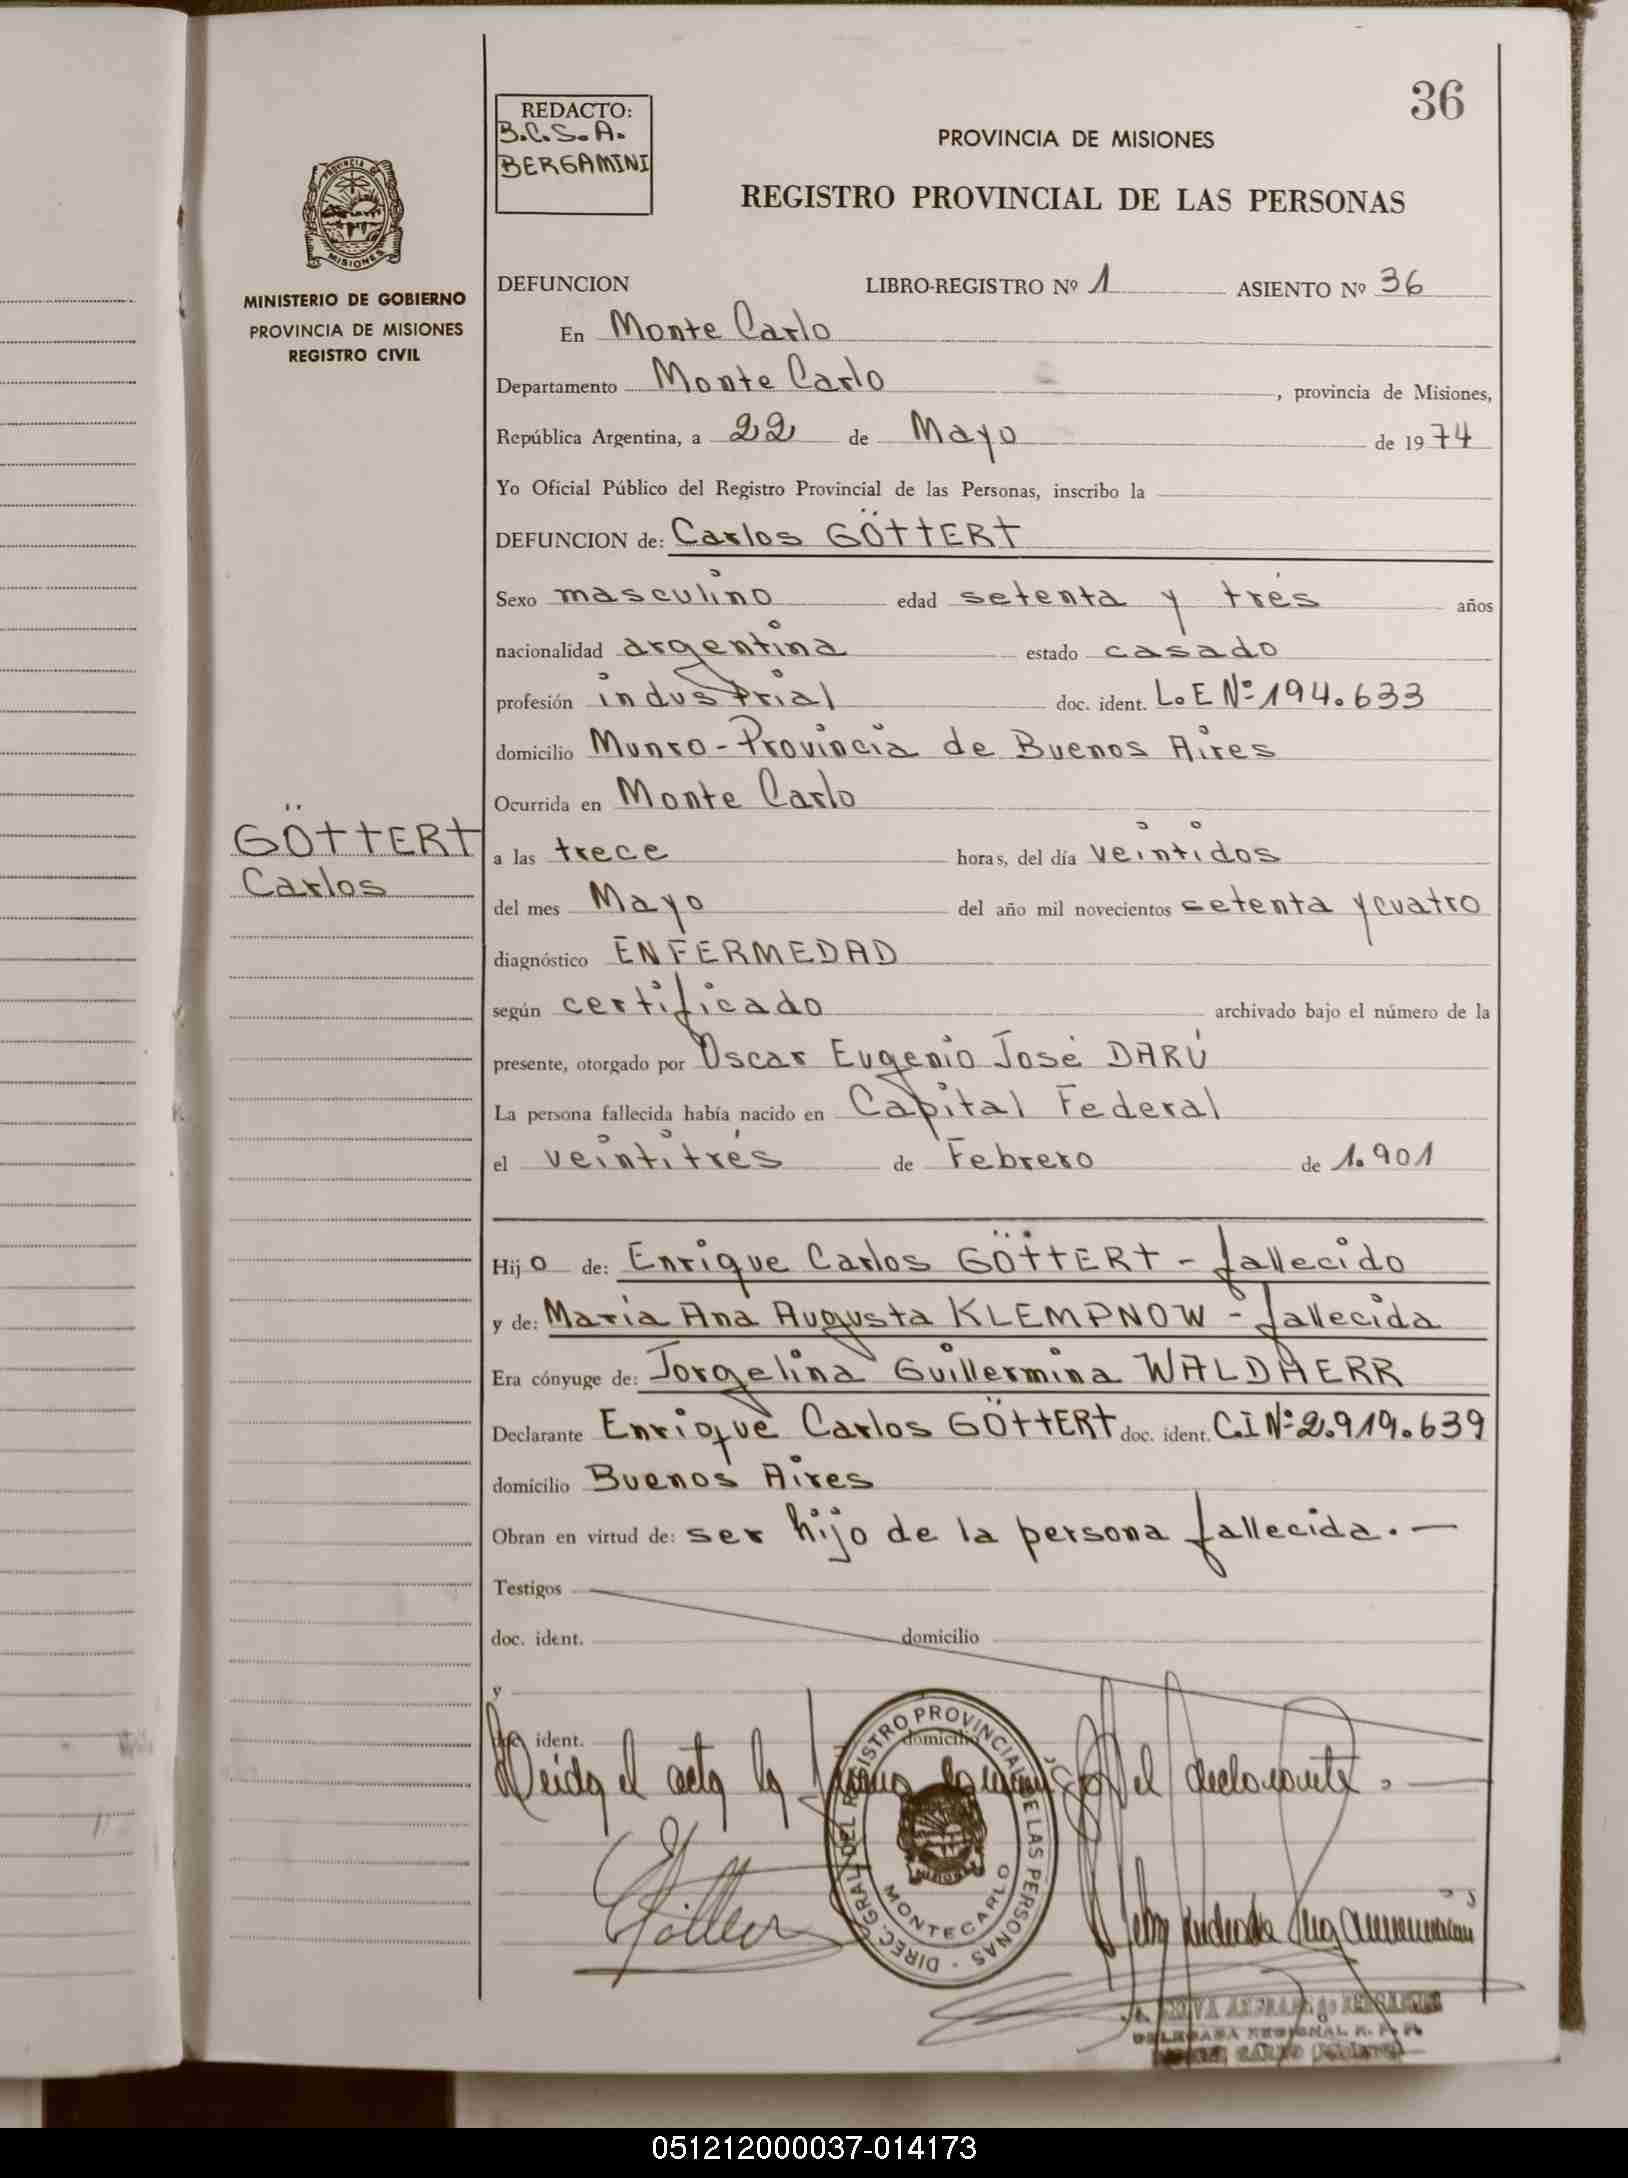 36
REDACTO:
B.C.S.A.
BERGAMINI
PROVINCIA DE MISIONES
REGISTRO PROVINCIAL DE LAS PERSONAS
PROVINCIA DE
MISIONES
MINISTERIO DE GOBIERNO
PROVINCIA DE MISIONES
REGISTRO CIVIL
DEFUNCION LIBRO-REGISTRO Nº 1 ASIENTO Nº 36
En Monte Carlo
Departamento Monte Carlo, provincia de Misiones,
República Argentina, a 22 de Mayo de 1974
Yo Oficial Público del Registro Provincial de las Personas, inscribo la
DEFUNCION de: Carlos GÖTTERT
Sexo masculino edad setenta y trés años
nacionalidad argentina estado casado
profesión industrial doc. ident. L.E Nº 194.633
domicilio Munro - Provincia de Buenos Aires
Ocurrida en Monte Carlo
GÖTTERT
Carlos
a las trece horas, del día veintidos
del mes Mayo del año mil novecientos setenta y cuatro
diagnóstico ENFERMEDAD
según certificado archivado bajo el número de la
presente, otorgado por Oscar Eugenio José DARÚ
La persona fallecida había nacido en Capital Federal
el veintitrés de Febrero de 1.901
Hijo de: Enrique Carlos GÖTTERT - fallecido
y de: María Ana Augusta KLEMPNOW - fallecida
Era cónyuge de: Jorgelina Guillermina WALDHERR
Declarante Enrique Carlos GÖTTERT doc. ident. C.I Nº 2.919.639
domicilio Buenos Aires
Obran en virtud de: ser hijo de la persona fallecida. —
Testigos
doc. ident. domicilio
y
doc. ident. domicilio
Leida el acta la firma conmigo el declarante. —
DIREC. GRAL. DEL REGISTRO PROVINCIAL DE LAS PERSONAS
MISIONES
MONTECARLO
DELEGADA REGIONAL R. P. P.
051212000037-014173